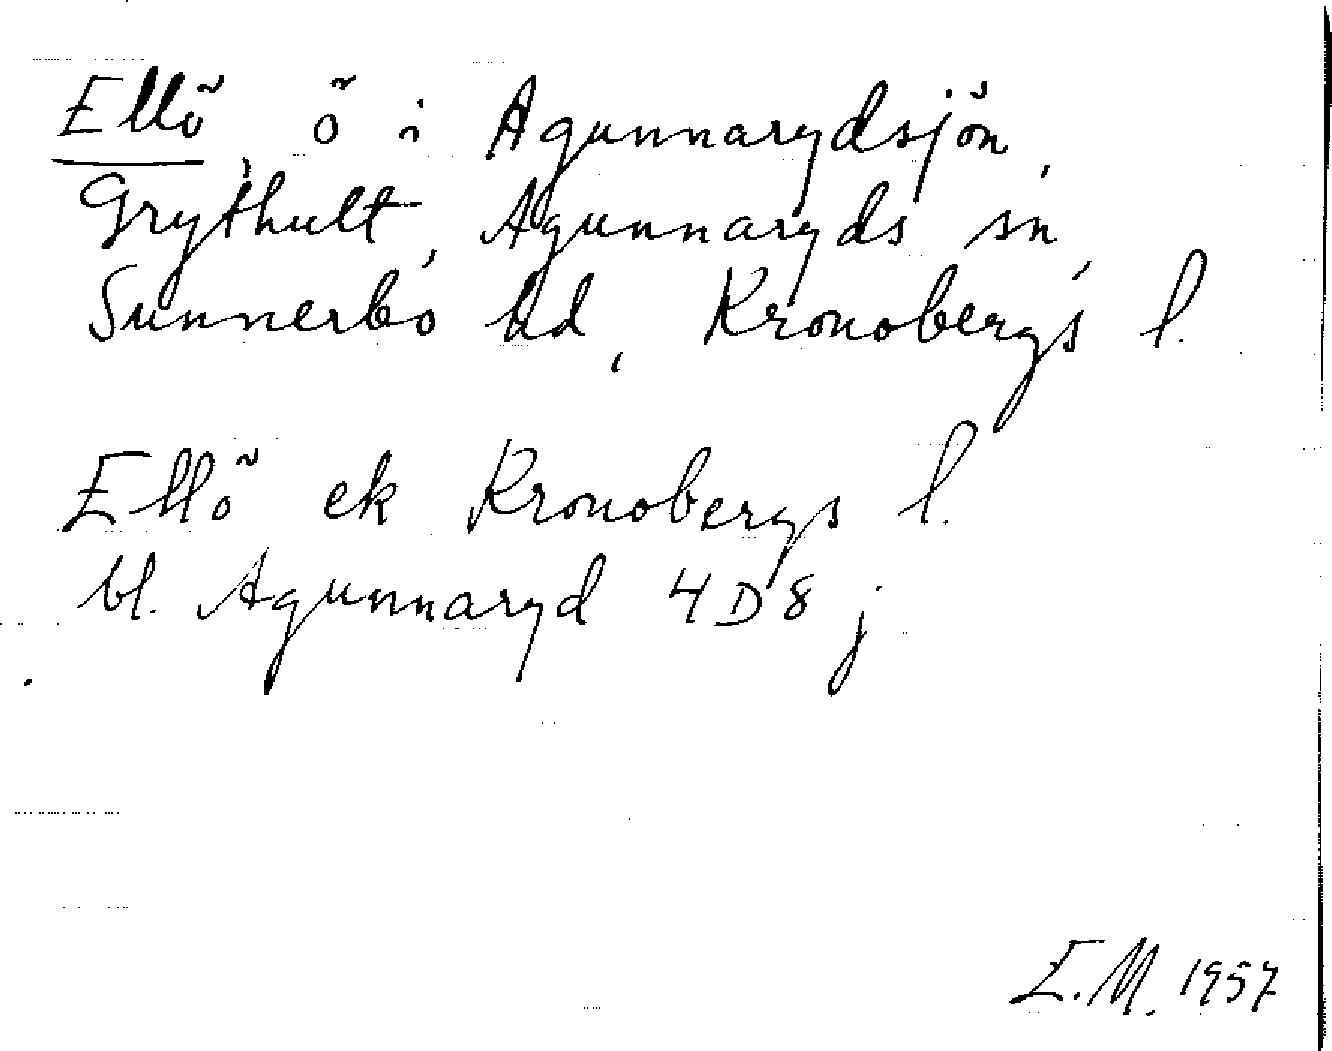 Ellö, ö i Agunnarydsjön,
Grythult, Agunnaryds sn,
Sunnerbo hd, Kronobergs l.
Ellö ek Kronobergs l.
bl. Agunnaryd 4D8j
E.M. 1957